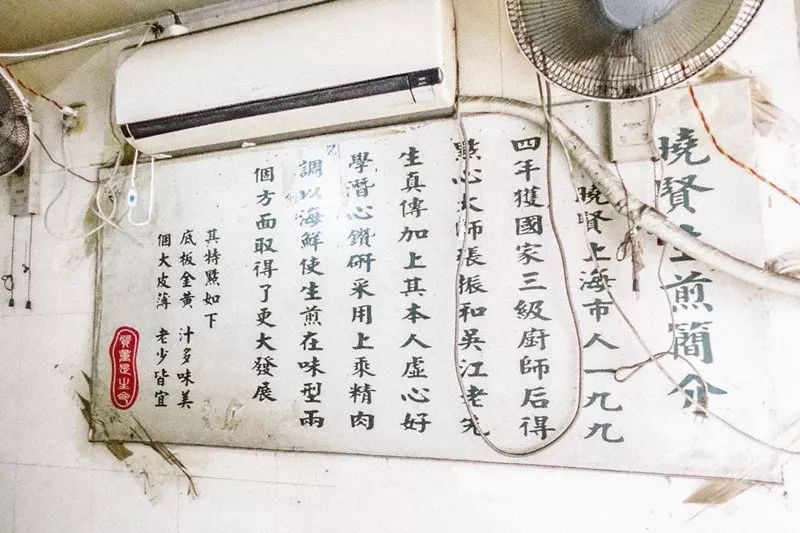 曉賢生煎簡介
曉賢上海市人一九九
四年獲國家三級廚師后得
點心大師張振和吳江老先
生真傳加上其本人虛心好
學潛心鑽研采用上乘精肉
調以海鮮使生煎在味型兩
個方面取得了更大發展
其特點如下
底板金黃 汁多味美
個大皮薄 老少皆宜
質量是生命